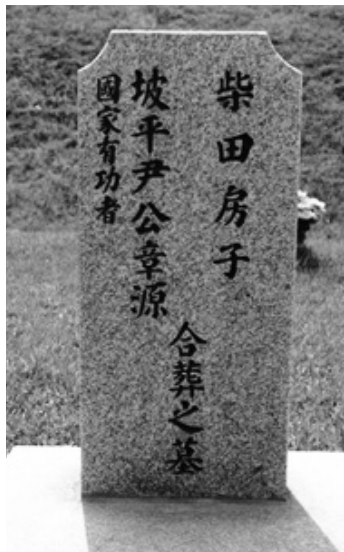 柴田房子
坡平尹公章源
國家有功者
合葬之墓